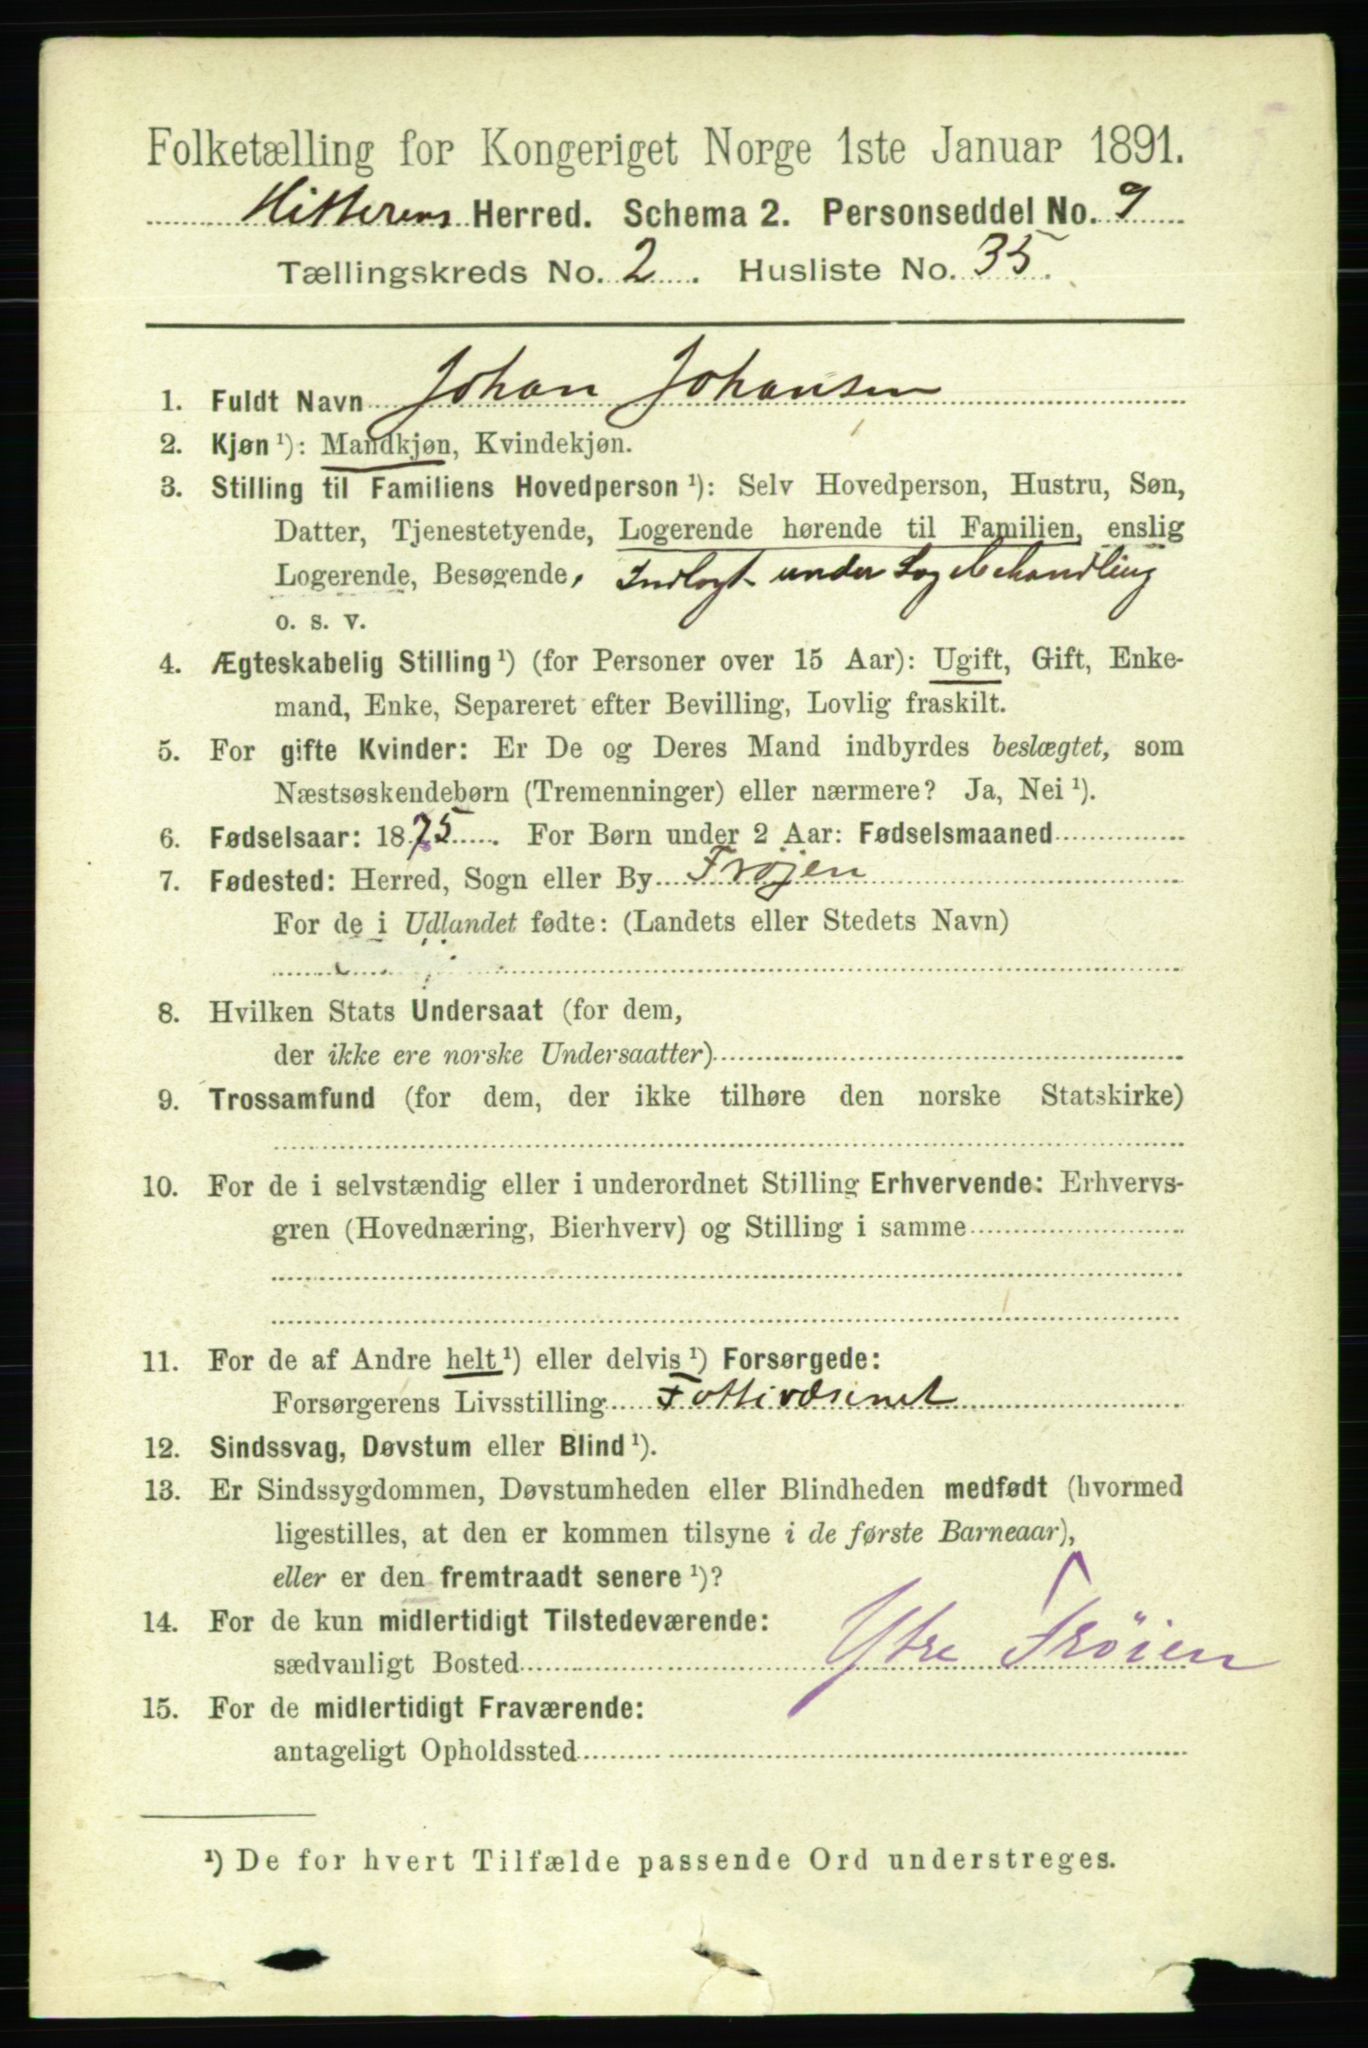 Folketælling for Kongeriget Norge 1ste Januar 1891.
Hitterens Herred. Schema 2. Personseddel No. 9
Tællingskreds No. 2. Husliste No. 35.
1. Fuldt Navn Johan Johansen
2. Kjøn ¹): Mandkjøn, Kvindekjøn.
3. Stilling til Familiens Hovedperson ¹): Selv Hovedperson, Hustru, Søn,
Datter, Tjenestetyende, Logerende hørende til Familien, enslig
Logerende, Besøgende, Indlagt under Lægebehandling
o. s. v.
4. Ægteskabelig Stilling ¹) (for Personer over 15 Aar): Ugift, Gift, Enke-
mand, Enke, Separeret efter Bevilling, Lovlig fraskilt.
5. For gifte Kvinder: Er De og Deres Mand indbyrdes beslægtet, som
Næstsøskendebørn (Tremenninger) eller nærmere? Ja, Nei ¹).
6. Fødselsaar: 1875. For Børn under 2 Aar: Fødselsmaaned
7. Fødested: Herred, Sogn eller By Frøjen
For de i Udlandet fødte: (Landets eller Stedets Navn)
8. Hvilken Stats Undersaat (for dem,
der ikke ere norske Undersaatter)
9. Trossamfund (for dem, der ikke tilhøre den norske Statskirke)
10. For de i selvstændig eller i underordnet Stilling Erhvervende: Erhvervs-
gren (Hovednæring, Bierhverv) og Stilling i samme
11. For de af Andre helt ¹) eller delvis ¹) Forsørgede:
Forsørgerens Livsstilling Fattivæsenet
12. Sindssvag, Døvstum eller Blind ¹).
13. Er Sindssygdommen, Døvstumheden eller Blindheden medfødt (hvormed
ligestilles, at den er kommen tilsyne i de første Barneaar),
eller er den fremtraadt senere ¹)?
14. For de kun midlertidigt Tilstedeværende:
sædvanligt Bosted Ytre Frøien
15. For de midlertidigt Fraværende:
antageligt Opholdssted
¹) De for hvert Tilfælde passende Ord understreges.